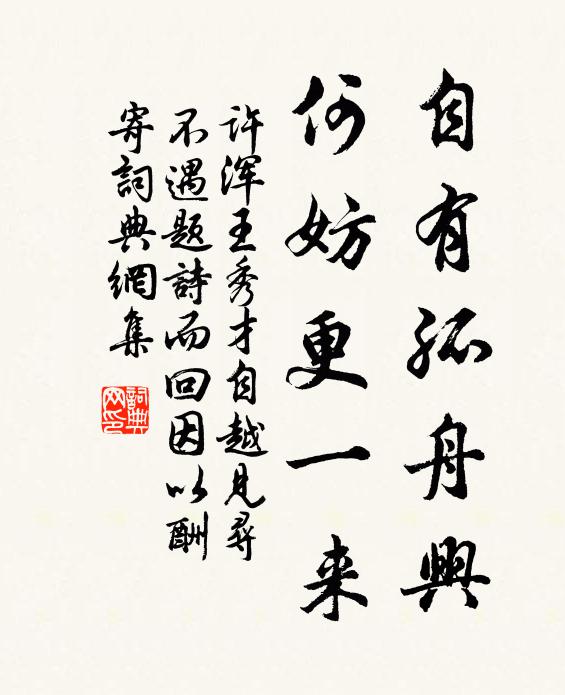 自有孤舟興
何妨更一来
许渾王秀才自越見尋
不遇题詩而回因以酬
寄詞典網集
詞典网印